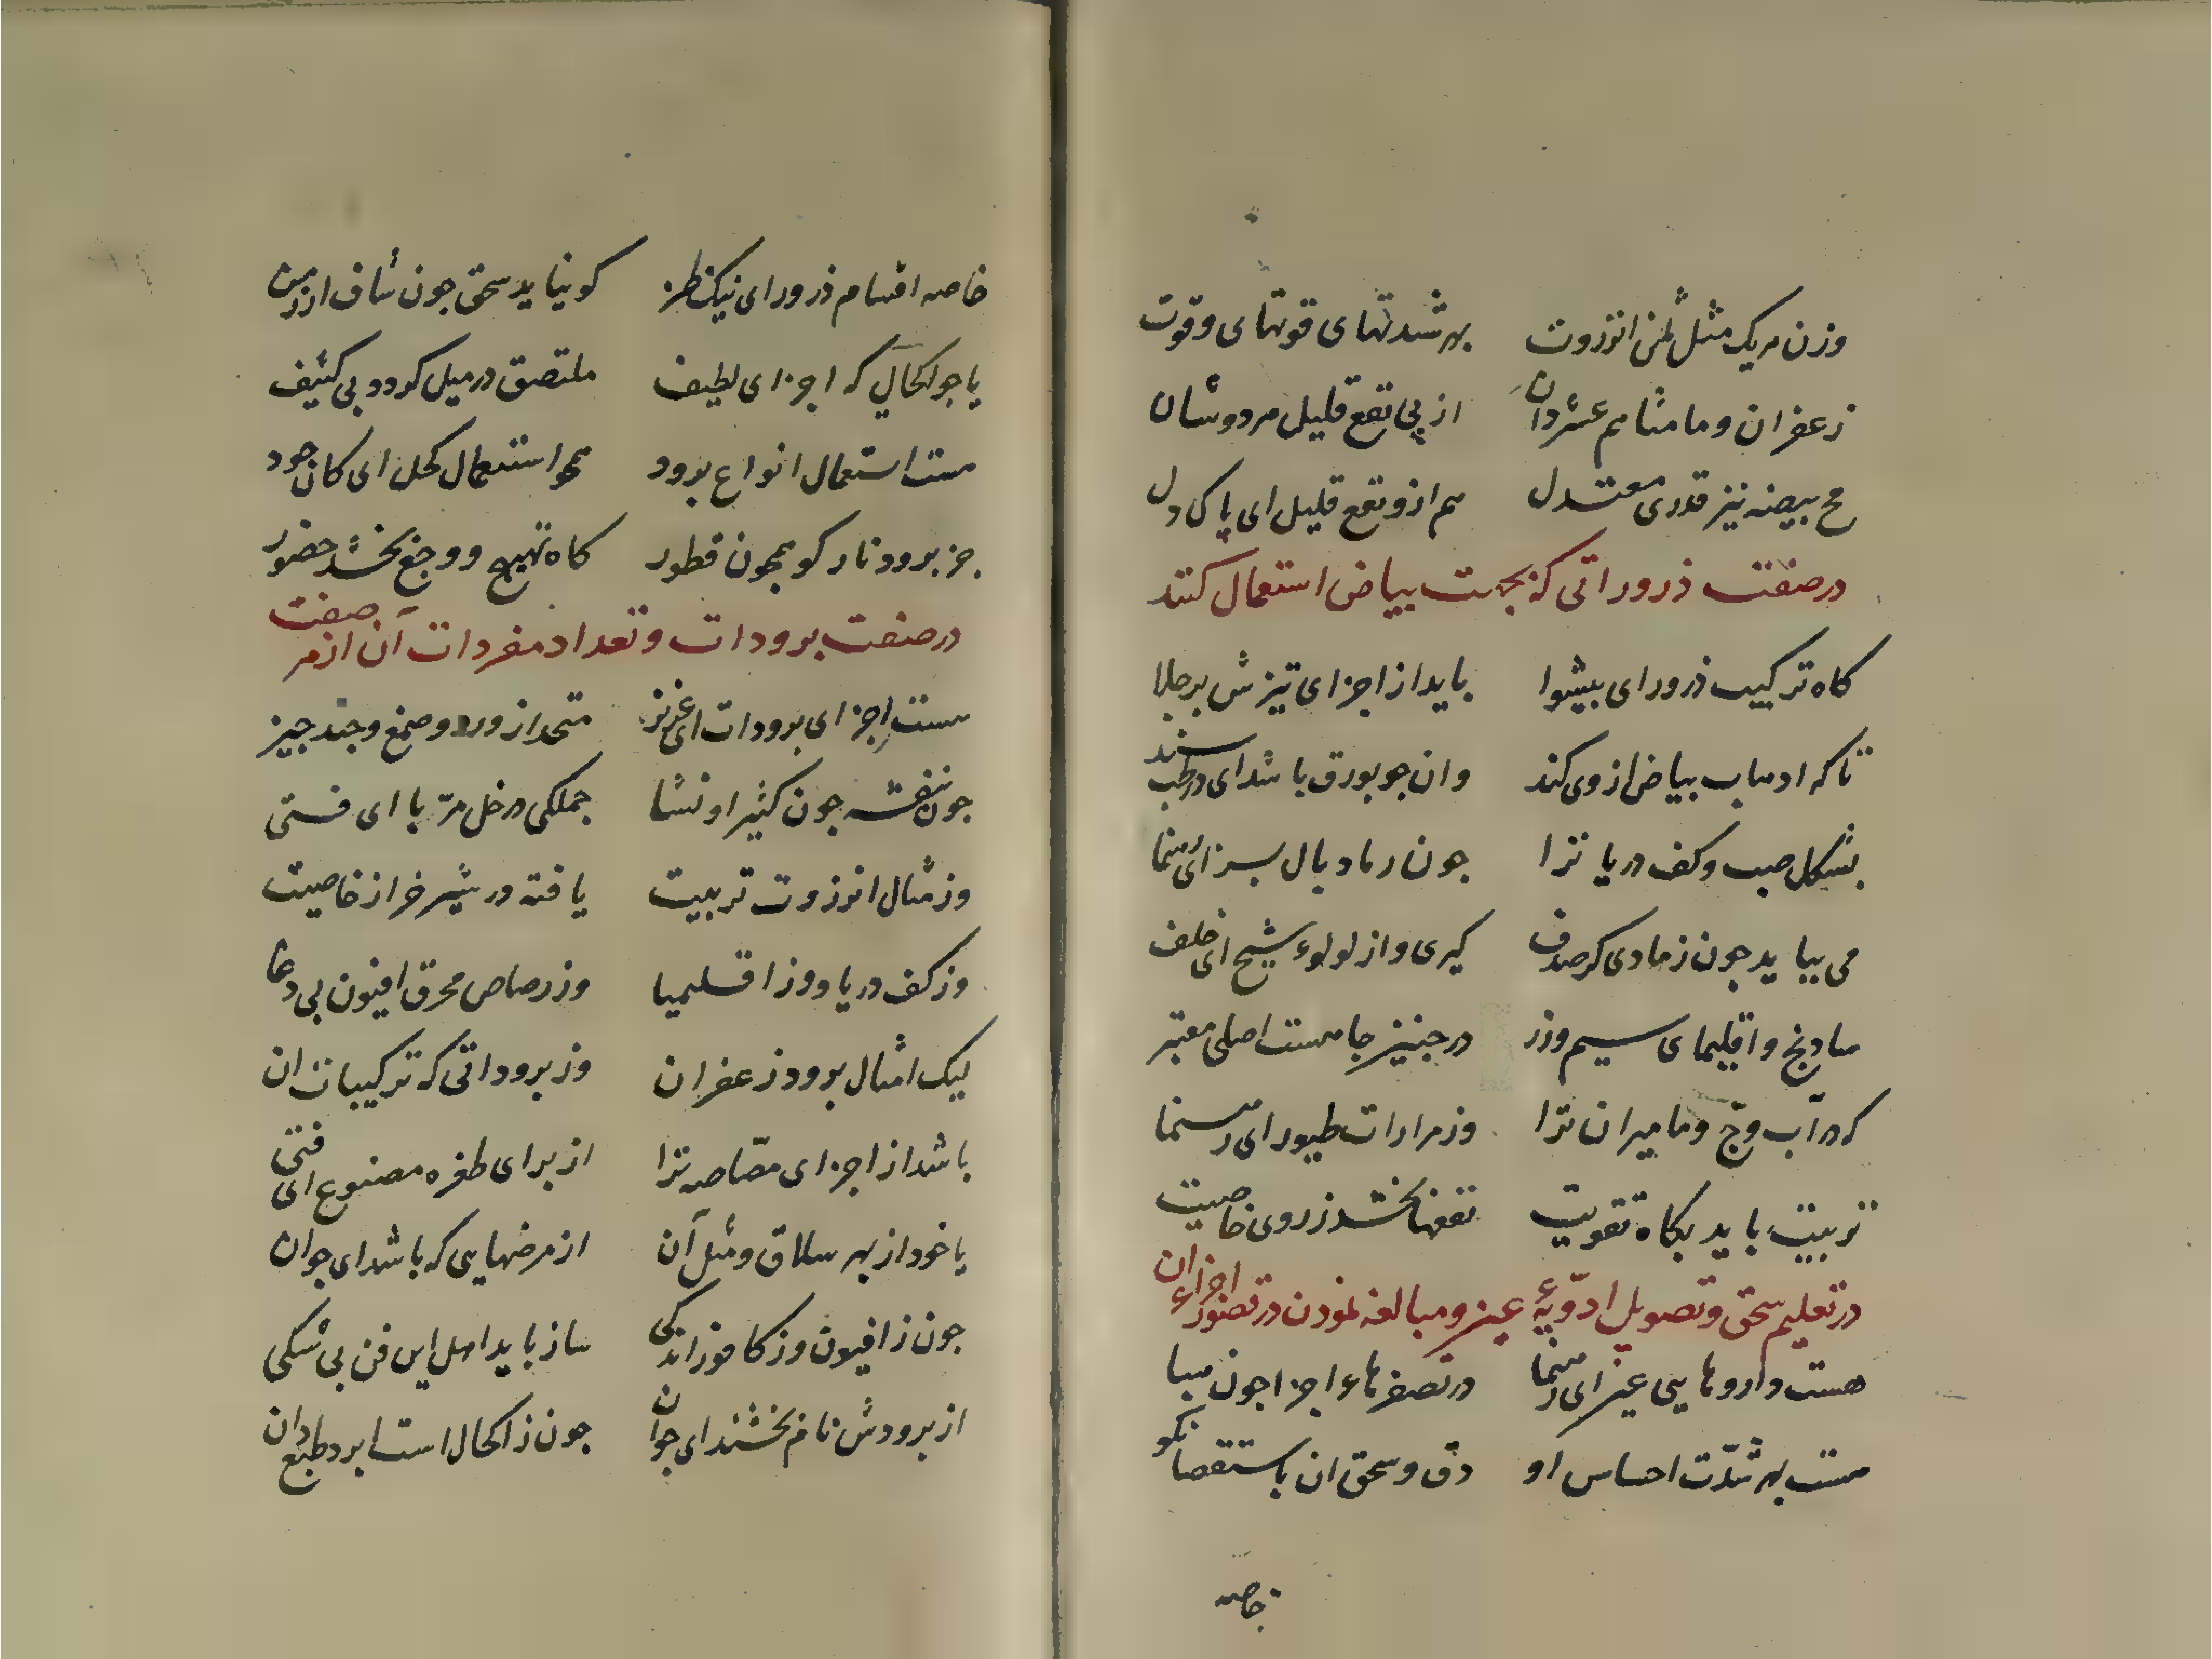 وزن هریک مثل ثمن انزروت بهر شدتهای قوتهای وقوت
زعفران و مامثا هم عشر دان از پی نفع قلیل مردوشان
مح بیضه نیز قدری معتدل هم ازو نفع قلیل ای پاک دل
در صنعت ذروراتی که بجهت بیاض استعمال کنند
کاه ترکیب ذرور ای پیشوا باید از اجزای تیزش بر جلا
تا که اذهاب بیاض از وی کند وان جو بورق باشد ای در طب سند
بشکل صب وکف دریا ترا جون رماد بال سبز ای رهنما
می بیاید جون زمادی کر صدف کیری و از لولوء شیح ای خلف
سادنج و اقلیمای سیم وزر در جنین جا هست اصلی معتبر
که در آب وج و مامیران ترا وز مرارات طیور ای رهنما
تربیت باید بکاه تقویت نفعها بخشد ز روی خاصیت
در تعلیم سحق و تصویل ادویهٔ عین و مبالغه نمودن در تصغیر اجزاء ان
هست داروهایی عین ای رهنما در تصغرهاء اجزا جون هبا
هست بهر شدّت احساس او دق و سحق ان باستقصا نکو
خاصه
خاصه اقسام ذرور ای نیک ظن کو نیاید سحق جون شاف ار زمن
یا جو اکحالی که اجزای لطیف ملتصق در میل کردد بی کثیف
هست استعمال انواع برود همجو استعمال کحل ای کان جود
جز برود نار کو همجون قطور کاه تهییج و وجع بخشد حضور
در صنعت برودات و تعداد مفردات آن از هر صفت
هست اجزای برودات ای عزیز متحد از ورد و صمغ و جند جیز
جون بنفشه جون کثیرا و نشا جملکی در خل مرّبا ای فتی
وز مثال انزروت تربیت یافته در شیر خر از خاصیت
وز کف دریا و وز اقلیمیا وز رصاص محرق افیون بی دغا
لیک امثال برود زعفران وز بروداتی که ترکیبات ان
باشد از اجزای مصّاصه ترا از برای ظفره مصنوع ای فتی
یا خود از بهر سلاق و مثل آن از مرضهایی که باشد ای جوان
جون ز افیون وز کافور اندکی ساز باید اهل این فن بی شکی
از برودش نام بخشند ای جوان جون ز اکحال است ابرد طبع دان